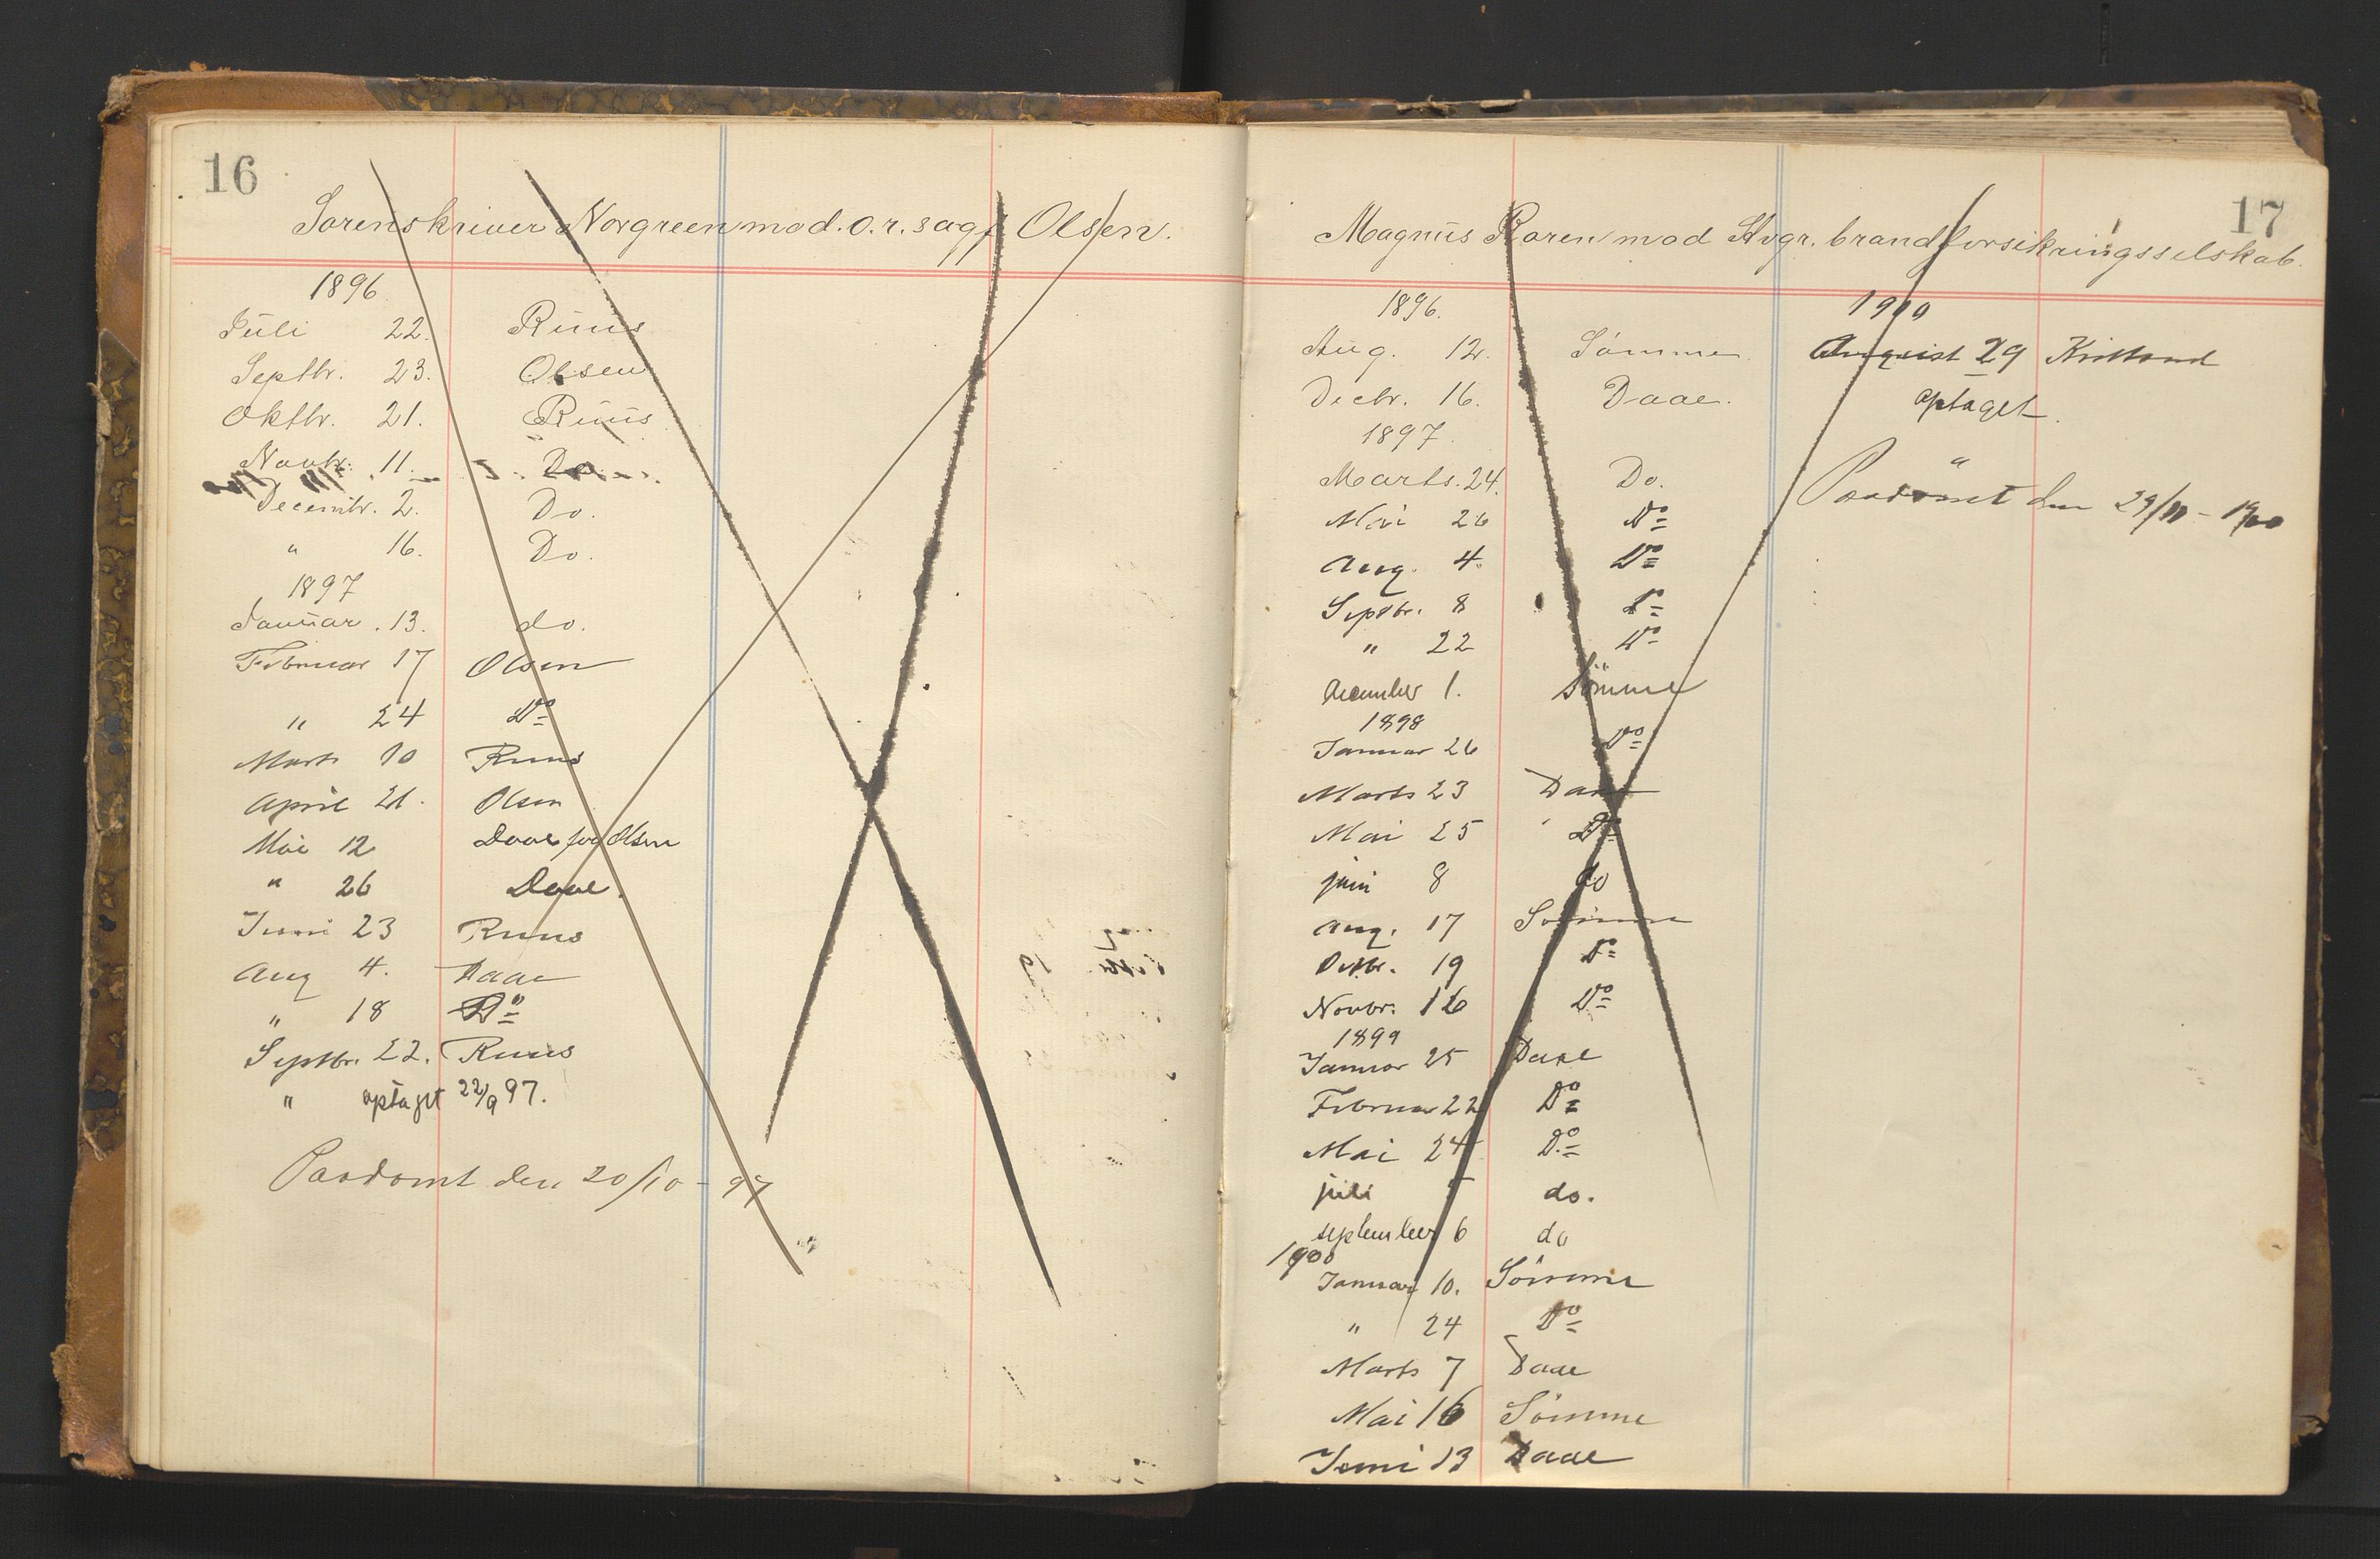 16
Sorenskriver Norgreen mod. o.r.sagf. Olsen.
1896
Juli 22. Ruus
Septbr. 23. Olsen
Oktbr. 21. Ruus
Novbr. 11. Do.
Decembr. 2. Do.
" 16. Do.
1897
Januar. 13. do.
Februar 17 Olsen
" 24 Do
Marts 10 Ruus
April 21. Olsen
Mai 12 Daae for Olsen
" 26 Daae.
Juni 23 Ruus
Aug 4. Daae
" 18 Do
Septbr. 22. Ruus
" optaget 22/9 97.
Paadømt den 20/10 - 97
17
Magnus Roren mod Stvgr. brandforsikringsselskab.
1896.
Aug. 12. Sömme
Decbr. 16. Daae.
1897.
Marts. 24. Do.
Mai 26 Do
Aug. 4. Do
Septbr. 8 Do
" 22 Do
December 1. Sömme
1898
Januar 26 Do
Marts 23 Daae
Mai 25 Do
juni 8 do
Aug. 17 Sömme
Octbr. 19 Do
Novbr. 16 Do
1899
Januar 25 Daae
Februar 22 Do
Mai 24 Do
juli do.
september 6 do
1900
Januar 10. Sömme
" 24 Do
Marts 7 Daae
Mai 16 Sömme
Juni 13 Daae
1900
August 29
optaget.
Paadømt den 29/11 - 1900